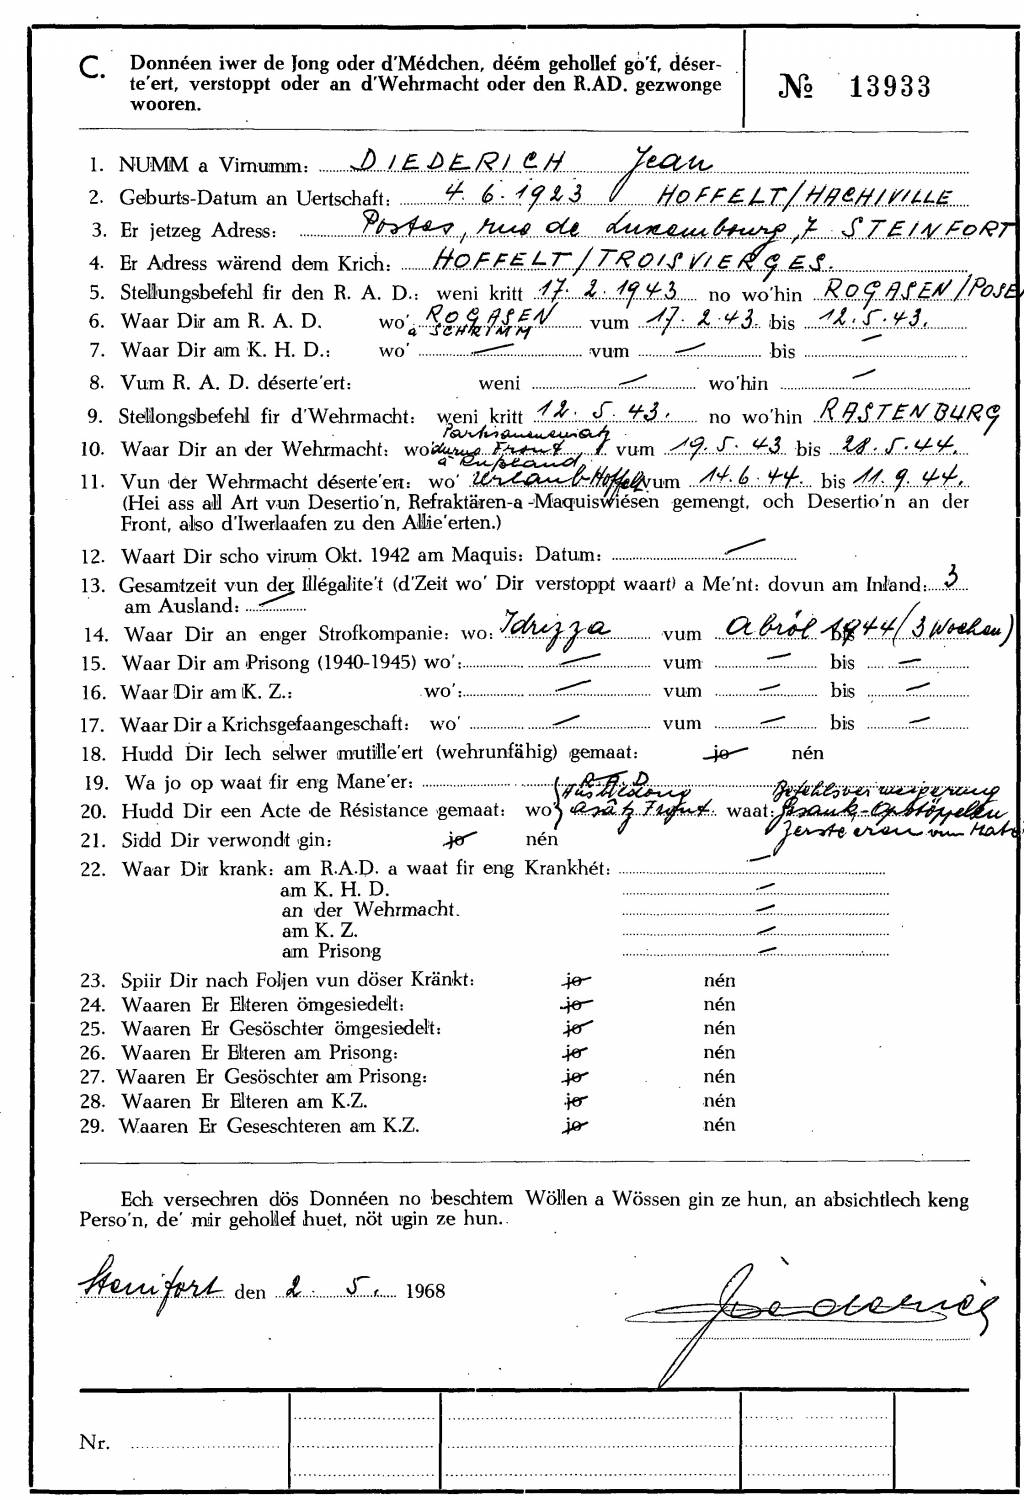 C. Donnéen iwer de Jong oder d'Médchen, déém gehollef gó'f, déser-
te'ert, verstoppt oder an d'Wehrmacht oder den R.AD. gezwonge
wooren.
№ 13933
1. NUMM a Virnumm: DIEDERICH Jean
2. Geburts-Datum an Uertschaft: 4.6.1923 HOFFELT/HACHIVILLE
3. Er jetzeg Adress: Postes, rue de Luxembourg, 7 STEINFORT
4. Er Adress wärend dem Krich: HOFFELT/TROISVIERGES.
5. Stellungsbefehl fir den R. A. D.: weni kritt 17. 2. 1943 no wo'hin ROGASEN/POSE
6. Waar Dir am R. A. D. wo' ROGASEN vum 17. 2.43. bis 12.5.43.
a SCHRIMM
7. Waar Dir am K. H. D.: wo' — vum — bis —
8. Vum R. A. D. déserte'ert: weni — wo'hin —
9. Stellongsbefehl fir d'Wehrmacht: weni kritt 12. 5. 43. no wo'hin RASTENBURG
Partisaneneinsatz
10. Waar Dir an der Wehrmacht: wo' Front vum 19.5.43 bis 28.5.44.
a Rußland,
11. Vun der Wehrmacht déserte'ert: wo' Urlaub-Hoffelt vum 14.6.44. bis 11.9.44.
(Hei ass all Art vun Desertio'n, Refraktären-a -Maquiswiésen gemengt, och Desertio'n an der
Front, also d'Iwerlaafen zu den Allie'erten.)
12. Waart Dir scho virum Okt. 1942 am Maquis: Datum: —
13. Gesamtzeit vun der Illégalite't (d'Zeit wo' Dir verstoppt waart) a Me'nt: dovun am Inland: 3
am Ausland: —
14. Waar Dir an enger Strofkompanie: wo: Idrizza vum Abröl 1944 bis (3 Wochen)
15. Waar Dir am Prisong (1940-1945) wo': — vum — bis —
16. Waar Dir am K. Z.: wo': — vum — bis —
17. Waar Dir a Krichsgefaangeschaft: wo' — vum — bis —
18. Hudd Dir Iech selwer mutille'ert (wehrunfähig) gemaat: jo nén
19. Wa jo op waat fir eng Mane'er: R.A.D
Ausbildong Befehlsverweigerung
20. Hudd Dir een Acte de Résistance gemaat: wo' asätz Front waat:
21. Sidd Dir verwondt gin: jo nén Zersteeren vum Mate
22. Waar Dir krank: am R.A.D. a waat fir eng Krankhét: —
am K. H. D. —
an der Wehrmacht. —
am K. Z. —
am Prisong —
23. Spiir Dir nach Foljen vun döser Kränkt: jo nén
24. Waaren Er Elteren ömgesiedelt: jo nén
25. Waaren Er Gesöschter ömgesiedelt: jo nén
26. Waaren Er Elteren am Prisong: jo nén
27. Waaren Er Gesöschter am Prisong: jo nén
28. Waaren Er Elteren am K.Z. jo nén
29. Waaren Er Geseschteren am K.Z. jo nén
Ech versechren dös Donnéen no beschtem Wöllen a Wössen gin ze hun, an absichtlech keng
Perso'n, de' mir gehollef huet, nöt ugin ze hun.
Steinfort den 2. 5. 1968
Diederich
Nr.